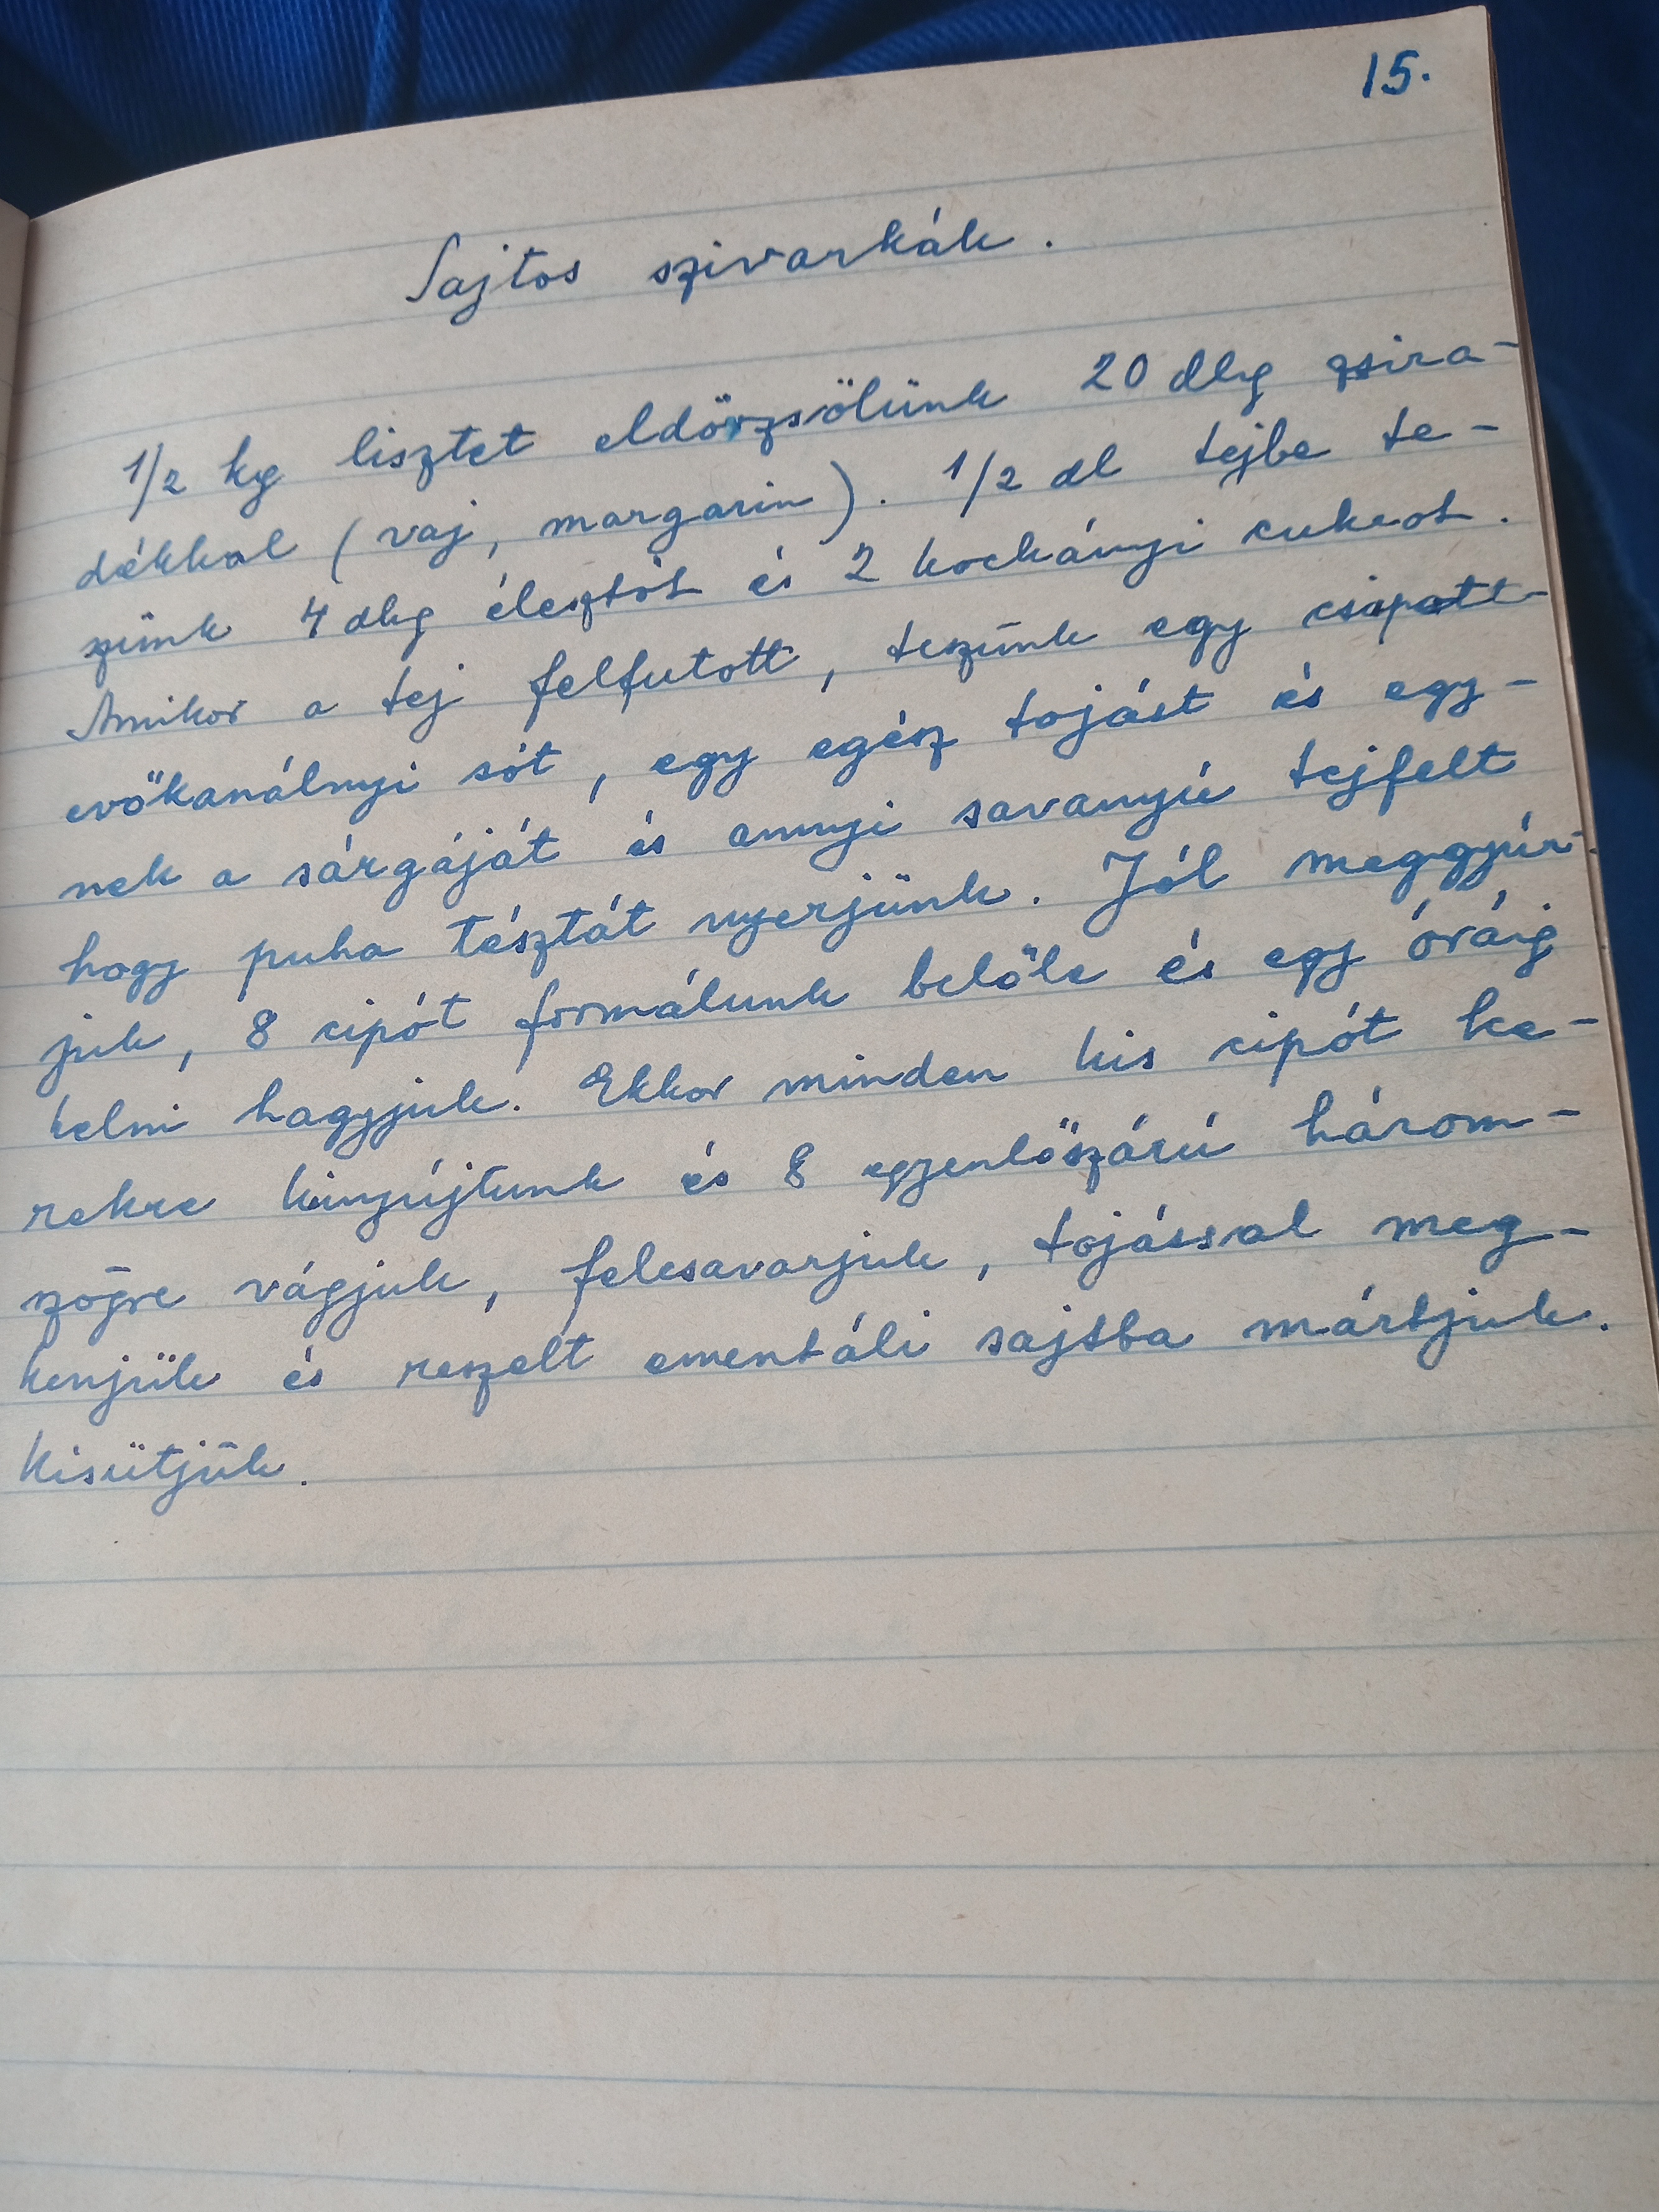 15.
Sajtos szivarkák.
1/2 kg lisztet eldörzsölünk 20 dkg zsira-
dékkal (vaj, margarin). 1/2 dl tejbe te-
szünk 4 dkg élesztőt és 2 kockányi cukrot.
Amikor a tej felfutott, teszünk egy csapott
evőkanálnyi sót, egy egész tojást és egy-
nek a sárgáját és annyi savanyú tejfelt
hogy puha tésztát nyerjünk. Jól meggyúr-
juk, 8 cipót formálunk belőle és egy óráig
kelni hagyjuk. Ekkor minden kis cipót ke-
rekre kinyújtunk és 8 egyenlőszárú három-
szögre vágjuk, felcsavarjuk, tojással meg-
kenjük és reszelt ementáli sajtba mártjuk.
Kisütjük.